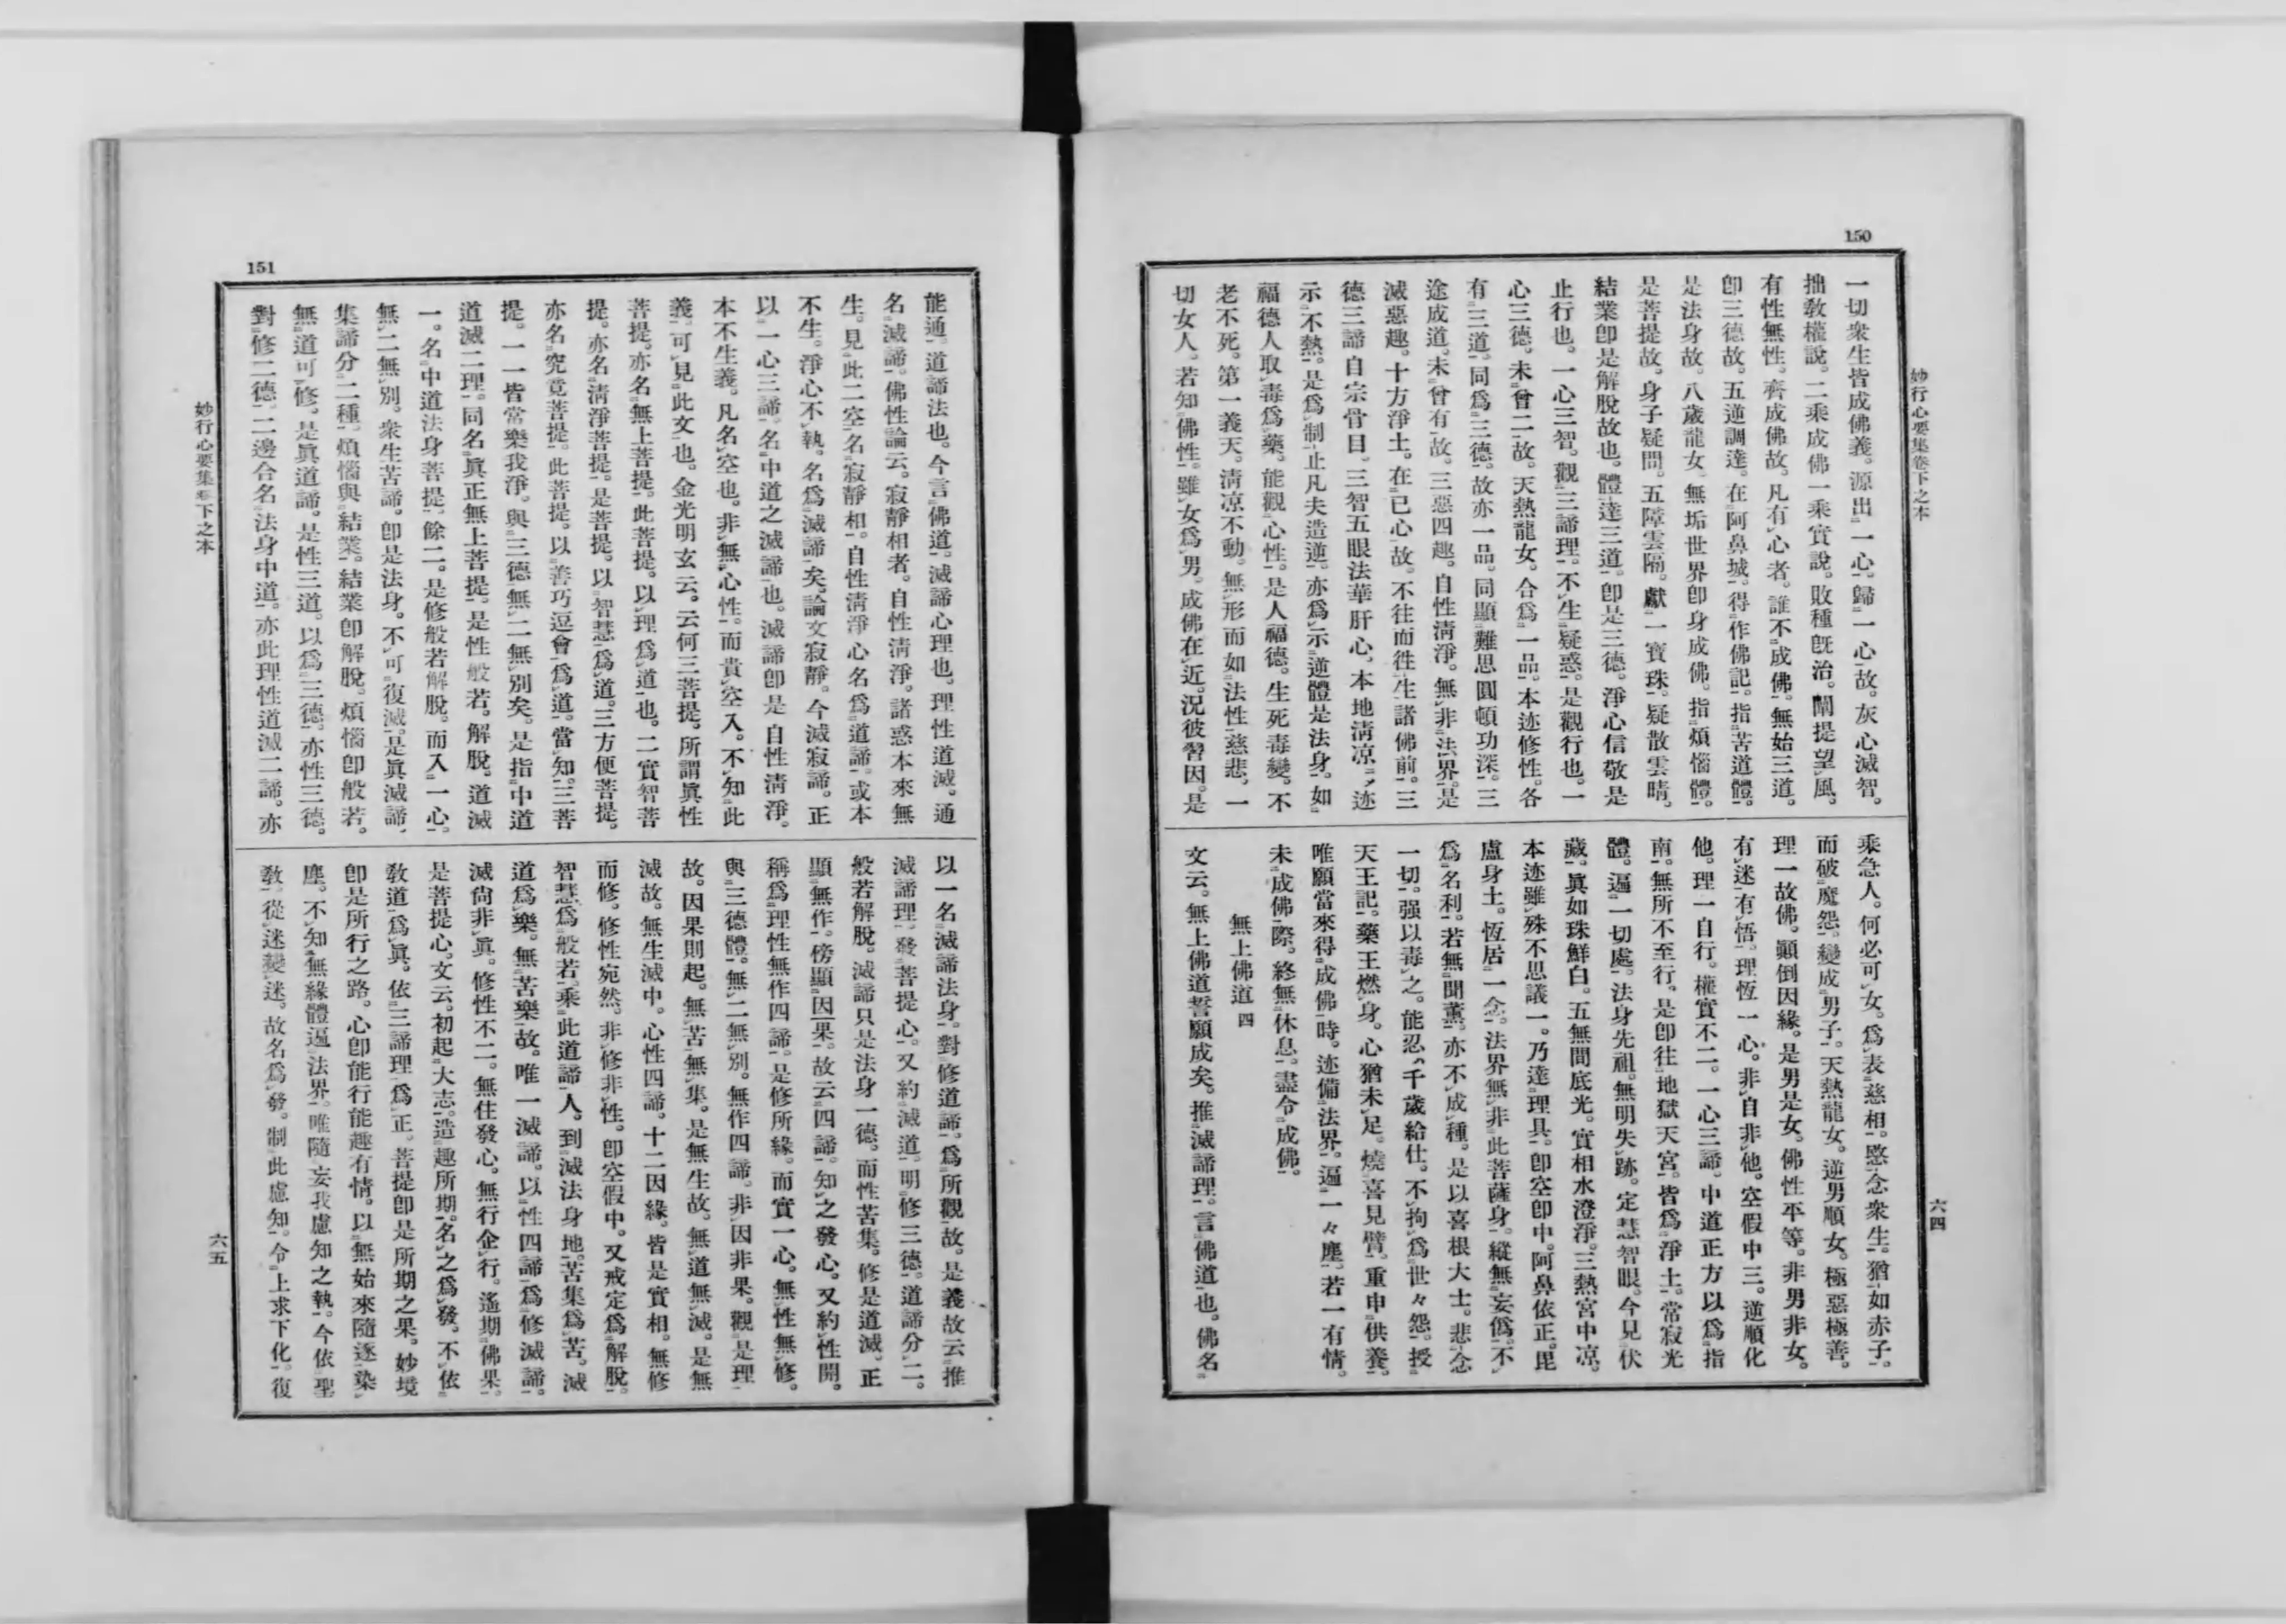 150
妙行心要集卷下之本
六四
一切衆生皆成佛義。源出一心。歸一心故。灰心滅智。
拙敎權說。二乘成佛一乘實說。敗種旣治。闡提望風。
有性無性。齊成佛故。凡有心者。誰不成佛。無始三道。
卽三德故。五逆調達。在阿鼻城。得作佛記。指苦道體。
是法身故。八歲龍女。無垢世界卽身成佛。指煩惱體。
是菩提故。身子疑問。五障雲隔。獻一寶珠。疑散雲晴。
結業卽是解脫故也。體達三道。卽是三德。淨心信敬是
止行也。一心三智。觀三諦理。不生疑惑。是觀行也。一
心三德。未曾二故。天熱龍女。合爲一品。本迹修性。各
有三道。同爲三德。故亦一品。同顯難思圓頓功深。三
途成道。未曾有故。三惡四趣。自性淸淨。無非法界。是
滅惡趣。十方淨土。在已心故。不往而往生諸佛前。三
德三諦自宗骨目。三智五眼法華肝心。本地淸凉。迹
示不熱。是爲制止凡夫造逆。亦爲示逆體是法身。如
福德人取毒爲藥。能觀心性。是人福德。生死毒變。不
老不死。第一義天。淸凉不動。無形而如法性慈悲。一
切女人。若知佛性。雖女爲男。成佛在近。況彼習因。是
乘急人。何必可女。爲表慈相。愍念衆生。猶如赤子。
而破魔怨。變成男子。天熱龍女。逆男順女。極惡極善。
理一故佛。顚倒因緣。是男是女。佛性平等。非男非女。
有迷有悟。理恆一心。非自非他。空假中三。逆順化
他。理一自行。權實不二。一心三諦。中道正方以爲指
南。無所不至行。是卽往地獄天宮。皆爲淨土。常寂光
體。遍一切處。法身先祖。無明失跡。定慧智眼。今見伏
藏。眞如珠鮮白。五無間底光。實相水澄淨。三熱宮中凉。
本迹雖殊不思議一。乃達理具。卽空卽中。阿鼻依正。毘
盧身土。恆居一念。法界無非此菩薩身。縱無妄僞。不
爲名利。若無聞薰。亦不成種。是以喜根大士。悲念
一切。强以毒之。能忍千歲給仕。不拘爲世々怨。授
天王記。藥王燃身。心猶未足。燒喜見臂。重申供養。
唯願當來得成佛時。迹備法界。遍一々塵。若一有情。
未成佛際。終無休息。盡令成佛。
無上佛道四
文云。無上佛道誓願成矣。推滅諦理。言佛道也。佛名
151
妙行心要集卷下之本
六五
能通。道諦法也。今言佛道。滅諦心理也。理性道滅。通
名滅諦。佛性論云。寂靜相者。自性淸淨。諸惑本來無
生。見此二空名寂靜相。自性淸淨心名爲道諦。或本
不生。淨心不執。名爲滅諦矣。論文寂靜。今滅寂諦。正
以一心三諦。名中道之滅諦也。滅諦卽是自性淸淨。
本不生義。凡名空也。非無心性。而貴空入。不知此
義。可見此文也。金光明玄云。云何三菩提。所謂眞性
菩提。亦名無上菩提。此菩提。以理爲道也。二實智菩
提。亦名淸淨菩提。是菩提。以智慧爲道。三方便菩提。
亦名究竟菩提。此菩提。以善巧逗會爲道。當知。三菩
提。一一皆常樂我淨。與三德無二無別矣。是指中道
道滅二理。同名眞正無上菩提。是性般若。解脫。道滅
一。名中道法身菩提。餘二。是修般若解脫。而入一心。
無二無別。衆生苦諦。卽是法身。不可復滅。是眞滅諦。
集諦分二種。煩惱與結業。結業卽解脫。煩惱卽般若。
無道可修。是眞道諦。是性三道。以爲三德。亦性三德。
對修二德。二邊合名法身中道。亦此理性道滅二諦。亦
以一名滅諦法身。對修道諦。爲所觀故。是義故云推
滅諦理。發菩提心。又約滅道。明修三德。道諦分二。
般若解脫。滅諦只是法身一德。而性苦集。修是道滅。正
顯無作。傍顯因果。故云四諦。知之發心。又約性開。
稱爲理性無作四諦。是修所緣。而實一心。無性無修。
與三德體。無二無別。無作四諦。非因非果。觀是理
故。因果則起。無苦無集。是無生故。無道無滅。是無
滅故。無生滅中。心性四諦。十二因緣。皆是實相。無修
而修。修性宛然。非修非性。卽空假中。又戒定爲解脫。
智慧爲般若。乘此道諦人。到滅法身地。苦集爲苦。滅
道爲樂。無苦樂故。唯一滅諦。以性四諦爲修滅諦。
滅尙非眞。修性不二。無住發心。無行企行。遙期佛果。
是菩提心。文云。初起大志。造趣所期。名之爲發。不依
敎道爲眞。依三諦理爲正。菩提卽是所期之果。妙境
卽是所行之路。心卽能行能趣有情。以無始來隨逐染
塵。不知無緣體遍法界。唯隨妄我慮知之執。今依聖
敎。從迷變迷。故名爲發。制此慮知。令上求下化。復